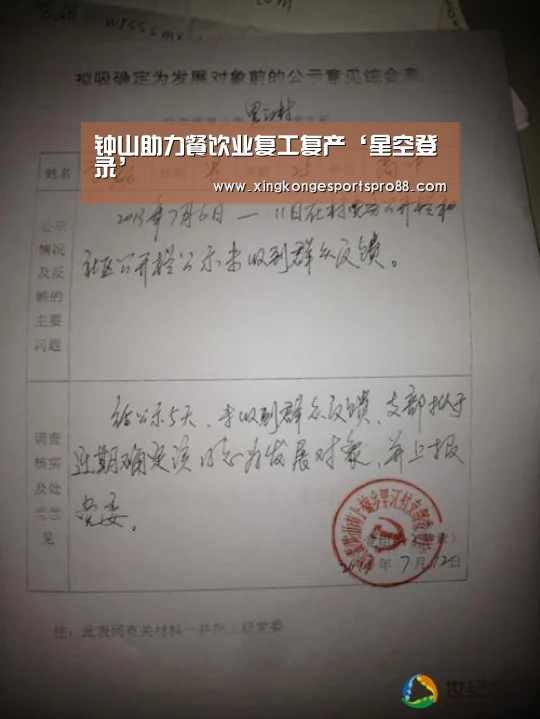 W1555.mx
拟吸确定为发展对象前的公示意见综合表
里江村
钟山助力餐饮业复工复产‘星空登
录’
www.xingkongesportspro88.com
姓名
公示
情况
及反
映的
主要
问题
2013年7月6日—11日在村党务公开栏和
社区公开栏公示未收到群众反馈。
调查
核实
及处
理意
见
经公示5天、未收到群众反馈、支部拟于
近期确定该同志为发展对象，并上报
党委。
年7月12日
注：此表同有关材料一并报上级党委
世纪